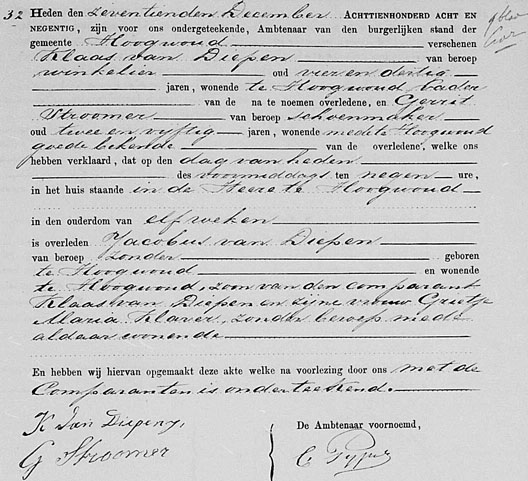 32 Heden den zeventienden December ACHTTIENHONDERD ACHT EN
NEGENTIG, zijn voor ons ondergeteekende, Ambtenaar van den burgerlijken stand der
gemeente Hoogwoud verschenen
Klaas van Diepen van beroep
winkelier oud vier en dertig
jaren, wonende te Hoogwoud vader
van de na te noemen overledene, en Gerrit
Stroomer van beroep schoenmaker
oud twee en vijftig jaren, wonende mede te Hoogwoud
goede bekende van de overledene, welke ons
hebben verklaard, dat op den dag van heden
des voormiddags ten negen ure,
in het huis staande in de Heere te Hoogwoud
in den ouderdom van elf weken
is overleden Jacobus van Diepen
van beroep zonder geboren
te Hoogwoud en wonende
te Hoogwoud, zoon van den comparant
Klaas van Diepen en zijne vrouw Grietje
Maria Klaver, zonder beroep mede
aldaar wonende
En hebben wij hiervan opgemaakt deze akte welke na voorlezing door ons met de
Comparanten is onderteekend.
K van Diepen
G Stroomer
De Ambtenaar voornoemd,